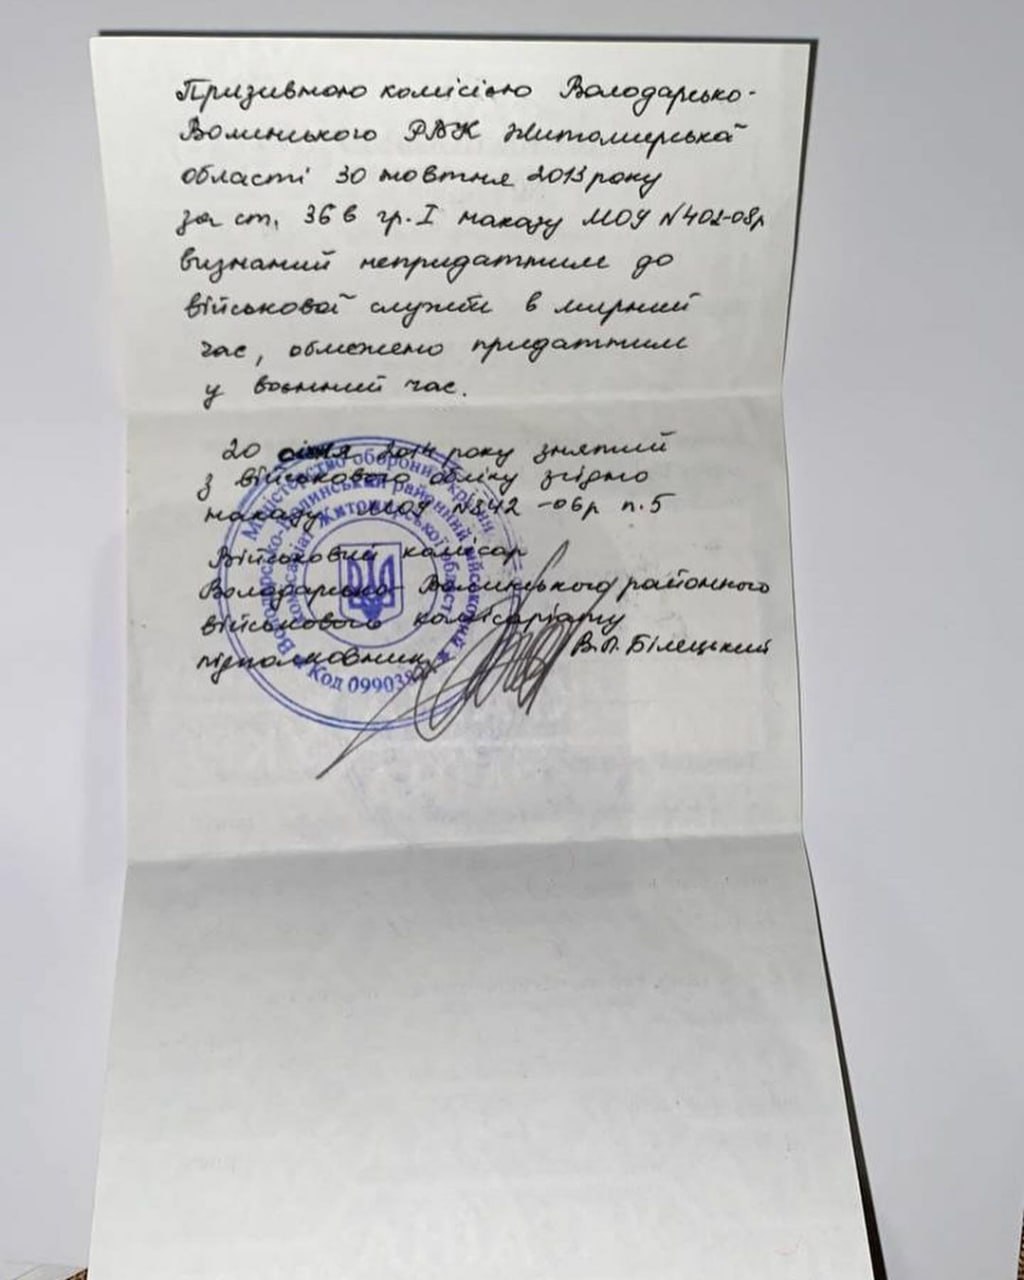 Призивною комісією Володарсько-
Волинського РВК Житомирської
області 30 жовтня 2013 року
за ст. 36 в гр. І наказу МОУ №402-08р
визнаний непридатним до
військової служби в мирний
час, обмежено придатним
у воєнний час.
20 січня 2014 року знятий
з військового обліку згідно
наказу МОУ №342-06р п.5
Військовий комісар
Володарсько-Волинського районного
військового комісаріату
підполковник В.П. Білецький
Міністерство оборони України
Володарсько-Волинський районний військовий
комісаріат Житомирської області
Код